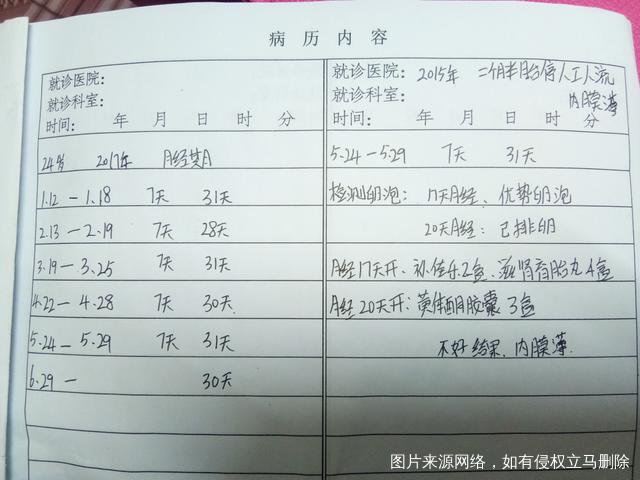 病 历 内 容
就诊医院:
就诊科室:
时间: 年 月 日 时 分
24岁 2017年 月经期月
1.12 — 1.18 7天 31天
2.13 — 2.19 7天 28天
3.19 — 3.25 7天 31天
4.22 — 4.28 7天 30天
5.24 — 5.29 7天 31天
6.29 — 30天
就诊医院: 2015年 二个月半胎停人工人流
就诊科室: 内膜薄
时间: 年 月 日 时 分
5.24 — 5.29 7天 31天
检测卵泡: 17天月经、优势卵泡
20天月经: 已排卵
月经17天开: 补佳乐2盒. 滋肾育胎丸4盒
月经20天开: 黄体酮胶囊 3盒
不好结果. 内膜薄.
图片来源网络，如有侵权立马删除